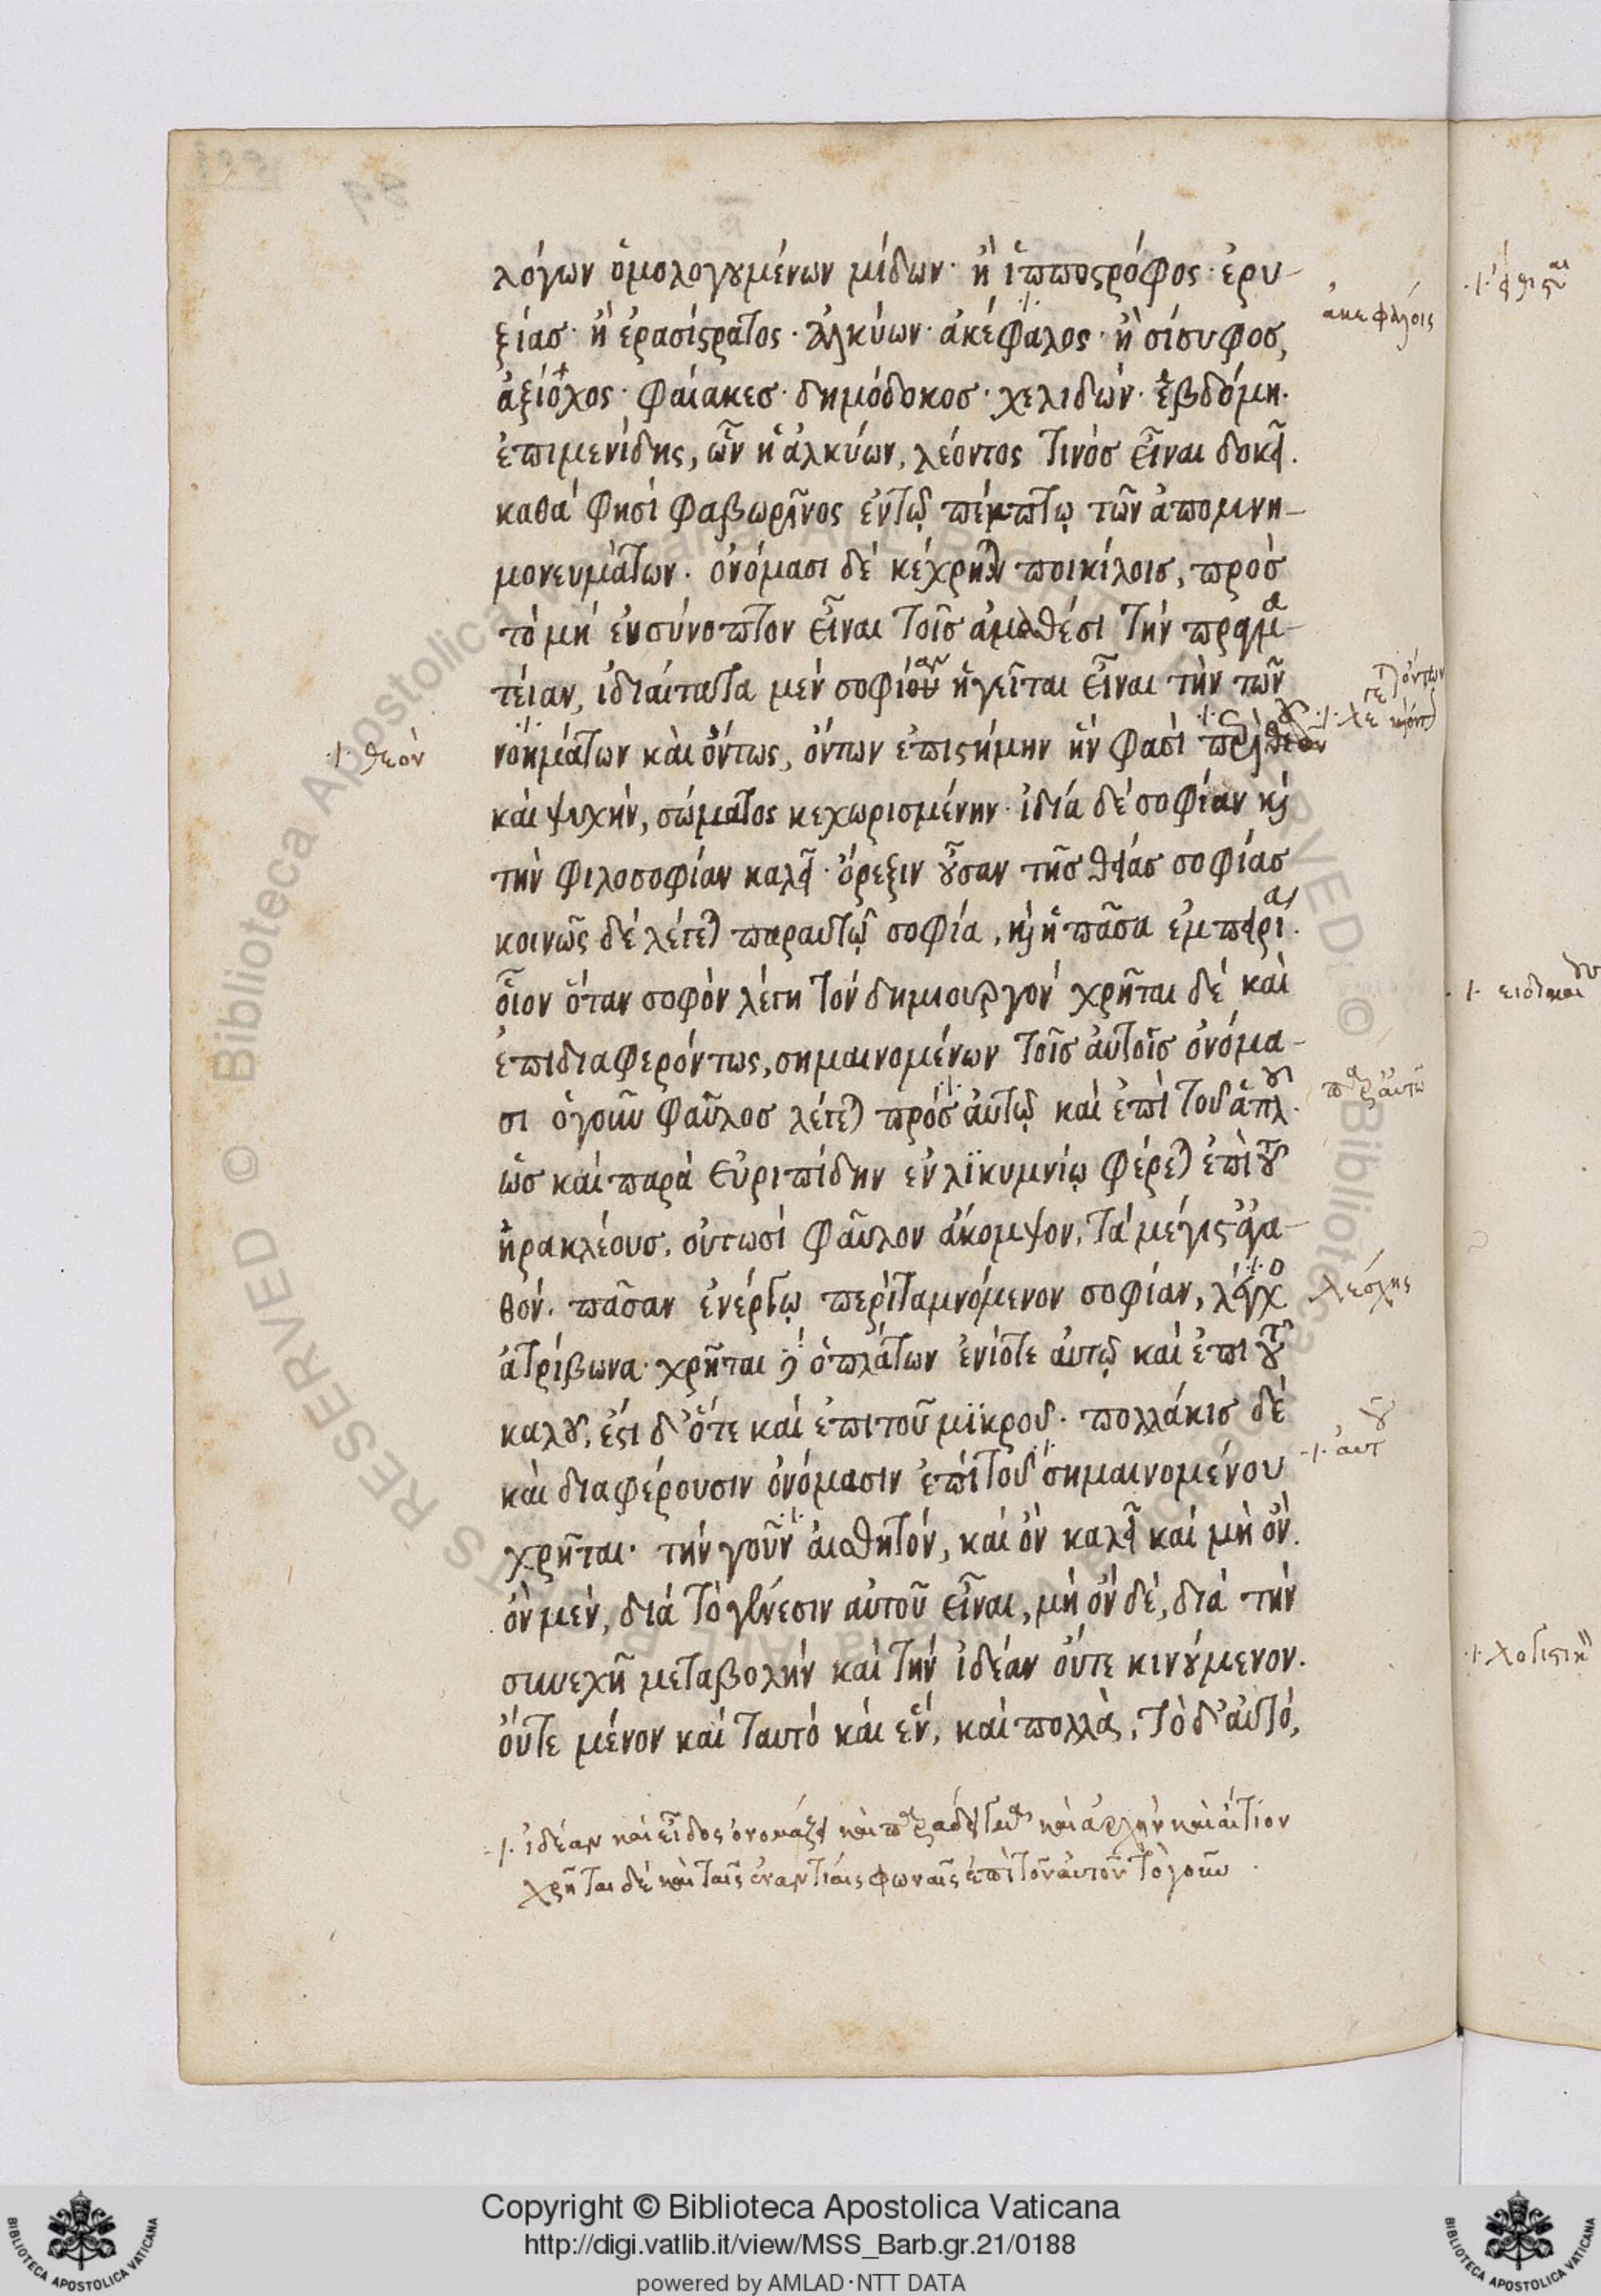 λόγων ὁμολογουμένων μίδων· ἢ ἱπποστρόφος· ἐρυ-
ξίας· ἢ ἐρασίστρατος· ἀλκύων· ἀκέφαλος· ἢ σίσυφος,
ἀξίοχος· φαίακες· δημόδοκος· χελιδών· ἑβδόμη·
ἐπιμενίδης, ὧν ἡ ἀλκύων, λέοντος τινὸς εἶναι δοκεῖ.
καθά φησι φαβωρῖνος ἐν τῷ πέμπτῳ τῶν ἀπομνη-
μονευμάτων. ὀνόμασι δὲ κέχρηται ποικίλοις, πρὸς
τὸ μὴ ἐνσύνοπτον εἶναι τοῖς ἀμαθέσι τὴν πραγμα-
τείαν, ἰδιαίτατα μὲν σοφίαν ἡγεῖται εἶναι τὴν τῶν
νοημάτων καὶ ὄντως, ὄντων ἐπιστήμην ἥν φασι περὶ θεὸν
καὶ ψυχὴν, σώματος κεχωρισμένην· ἰδία δὲ σοφίαν καὶ
τὴν φιλοσοφίαν καλεῖ· ὄρεξιν οὖσαν τῆς θείας σοφίας
κοινῶς δὲ λέγεται παρ αυτῷ σοφία, καὶ ἡ πᾶσα ἐμπειρία.
οἷον ὅταν σοφὸν λέγη τὸν δημιουργὸν χρῆται δὲ καὶ
ἐπι διαφερόντως, σημαινομένων τοῖς αὐτοῖς ὀνόμα-
σι ὁ γοῦν φαῦλος λέγεται πρὸς αὐτῷ καὶ ἐπὶ τοῦ ἁπλοῦ.
ὡς καὶ παρὰ εὐριπίδην ἐν λϊκυμνίῳ φέρεται ἐπὶ τοῦ
ἡρακλέους. οὑτωσὶ φαῦλον ἄκομψον, τὰ μέγιστ ἀγα-
θόν. πᾶσαν ἐν ἔργῳ περιταμνόμενον σοφίαν,
ἀτρίβωνα· χρῆται δὲ ὁ πλάτων ἐνίοτε αὐτῷ καὶ ἐπι τοῦ
καλοῦ, ἔστι δ' ὅτε καὶ ἐπι τοῦ μϊκροῦ· πολλάκις δὲ
καὶ διαφέρουσιν ὀνόμασιν ἐπὶ τοῦ σημαινομένου
χρῆται· τὴν γοῦν αἰσθητόν, καὶ ὂν καλεῖ καὶ μὴ ὄν.
ὂν μὲν, διὰ τὸ γένεσιν αὐτοῦ εἶναι, μὴ ὂν δὲ, διὰ τὴν
συνεχῆ μεταβολὴν καὶ τὴν ἰδέαν οὔτε κινούμενον.
οὔτε μένον καὶ ταυτὸ καὶ ἓν, καὶ πολλὰ, τὸ δ' αὐτὸ,
ἰδέαν καὶ εἶδος ὀνομάζει καὶ παράδειγμα καὶ ἀρχὴν καὶ αἴτιον
χρῆται δὲ καὶ ταῖς ἐναντίαις φωναῖς ἐπὶ τοῦ αυτοῦ τὸ γοῦν
ἀκεφάλοις
θεὸν
παρ αὐτῷ
λέσχης
αὐτοῦ
Copyright © Biblioteca Apostolica Vaticana
http://digi.vatlib.it/view/MSS_Barb.gr.21/0188
powered by AMLAD·NTT DATA